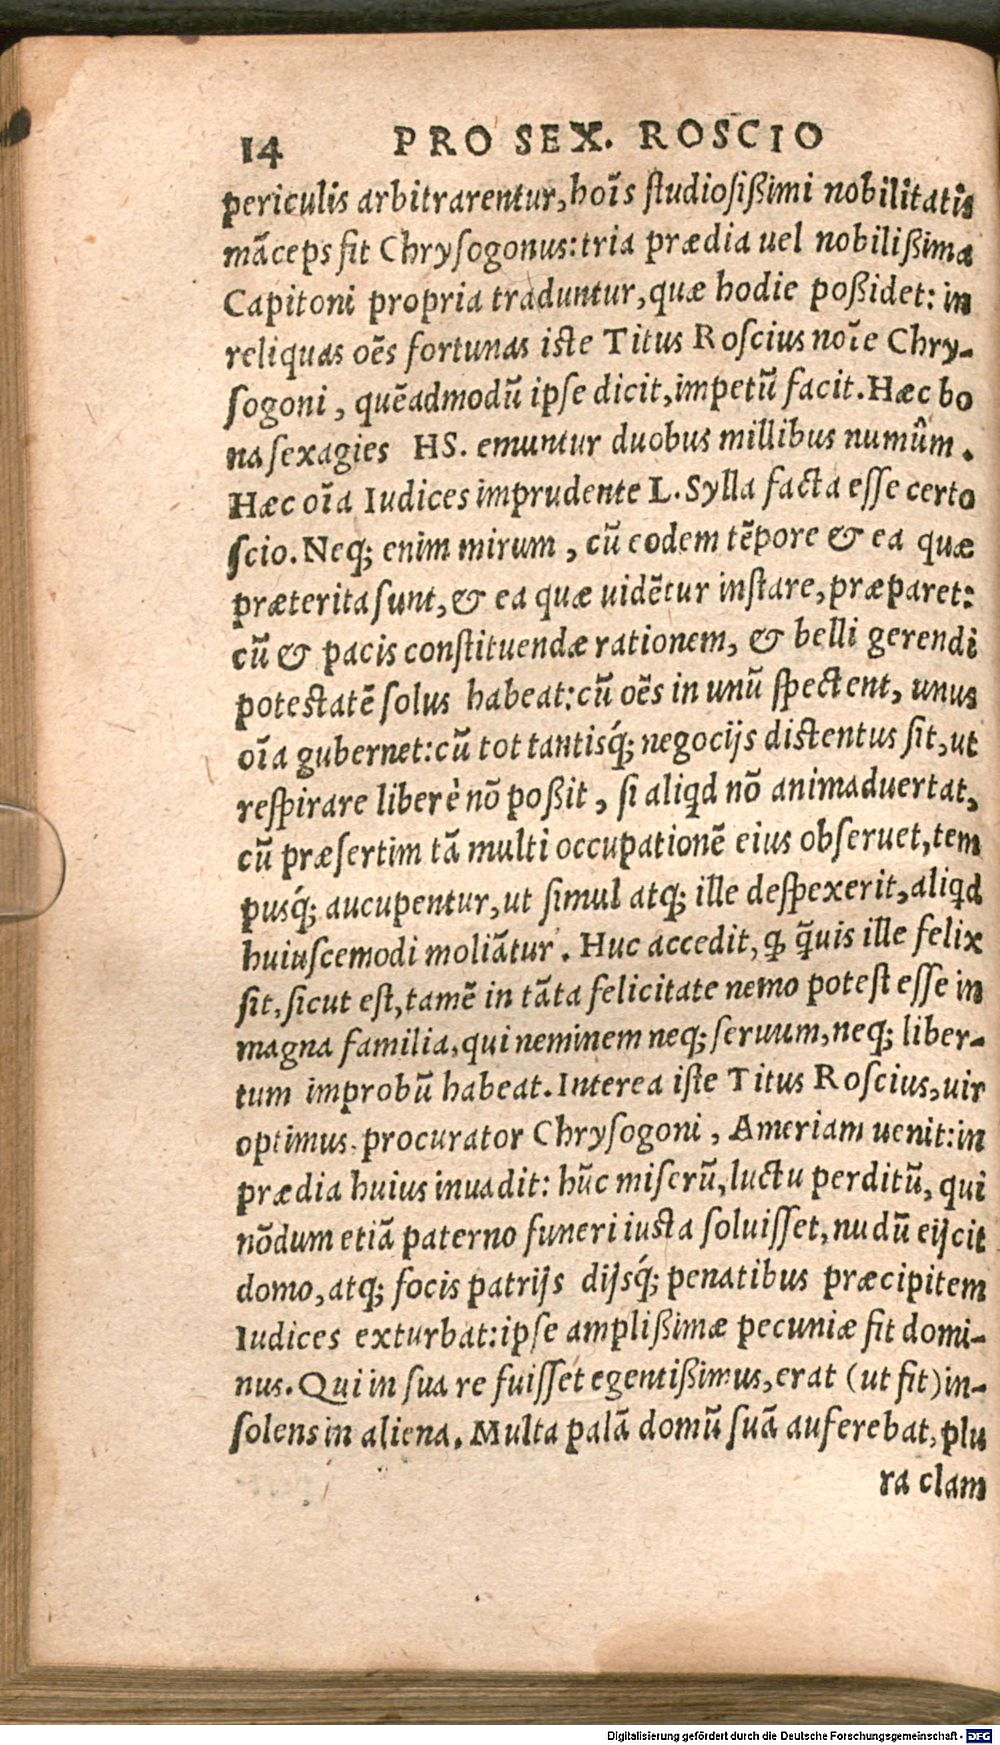 14 PRO SEX. ROSCIO
periculis arbitrarentur, hoı̄s ſtudioſißimi nobilitatis
mãceps fit Chryſogonus: tria prædia uel nobilißima
Capitoni propria traduntur, quæ hodie poßidet: in
reliquas oēs fortunas iſte Titus Roſcius noı̄e Chry-
ſogoni, quēadmodũ ipſe dicit, impetũ facit. Hæc bo
na ſexagies HS. emuntur duobus millibus numûm.
Hæc oı̄a Iudices imprudente L. Sylla facta eſſe certo
ſcio. Neq; enim mirum, cũ eodem tēpore & ea quæ
præterita ſunt, & ea quæ uidētur inſtare, præparet:
cũ & pacis conſtituendæ rationem, & belli gerendi
poteſtatē ſolus habeat: cũ oēs in unũ ſpectent, unus
oı̄a gubernet: cũ tot tantisq́; negocijs diſtentus ſit, ut
reſpirare liberè nõ poßit, ſi aliqd nõ animaduertat,
cũ præſertim tã multi occupationē eius obſeruēt, tem
pusq́; aucupentur, ut ſimul atq; ille deſpexerit, aliqd
huiuſcemodi moliãtur. Huc accedit, ꝙ q̃uis ille felix
ſit, ſicut eſt, tamē in tãta felicitate nemo poteſt eſſe in
magna familia, qui neminem neq; ſeruum, neq; liber-
tum improbũ habeat. Interea iſte Titus Roſcius, uir
optimus, procurator Chryſogoni, Ameriam uenit: in
prædia huius inuadit: hũc miſerũ, luctu perditũ, qui
nõdum etiã paterno funeri iuſta ſoluiſſet, nudũ eijcit
domo, atq; focis patrijs dijsq́; penatibus præcipitem
Iudices exturbat: ipſe amplißimæ pecuniæ fit domi-
nus. Qui in ſua re fuiſſet egentißimus, erat (ut fit) in-
ſolens in aliena. Multa palã domũ ſuã auferebat, plu
ra clam
Digitalisierung gefördert durch die Deutsche Forschungsgemeinschaft - DFG